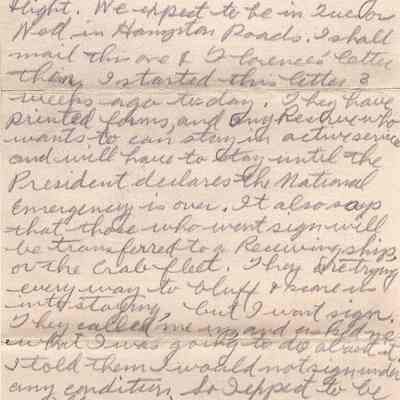 flight. We expect to be in Tue or
Wed in Hampton Roads. I shall
mail this one & Florence's letter
then. I started this letter 3
weeks ago today. They have
printed forms, and any Reserve who
wants to can stay in active service
and will have to stay until the
President declares the National
Emergency is over. It also says
that those who wont sign will
be transferred to a Receiving ship,
or the Crab fleet. They are trying
every way to bluff & scare us
into staying, but I wont sign.
They called me up and asked me
what I was going to do about it.
I told them I would not sign under
any condition, so I expect to be